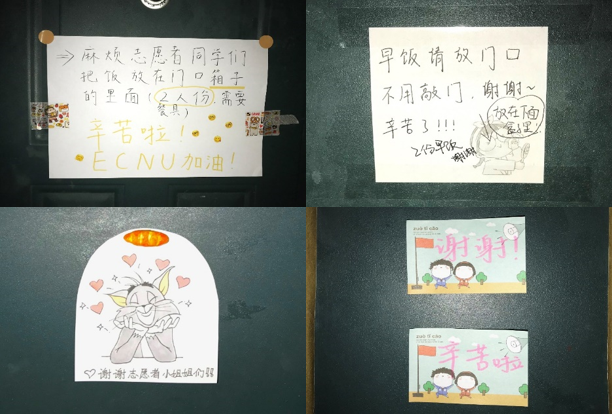 ⇒ 麻烦志愿者同学们
把饭放在门口箱子
的里面(2人份,需要
餐具)
辛苦啦!
ECNU加油!
早饭请放门口
不用敲门,谢谢~
辛苦了!!!
放在下面
盒子里
2份早饭
谢谢
♡谢谢志愿者小姐姐们
谢谢!
辛苦啦